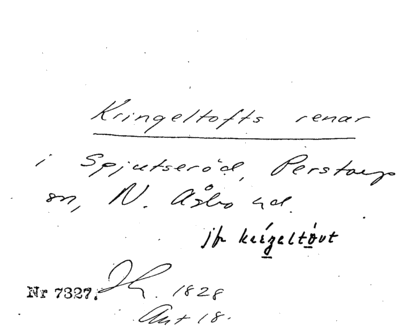 Kringeltofts renar
i Spjutseröd, Perstorp
sn, N. Åsbo hd.
jfr
Nr 7327. 1828
Akt 18.